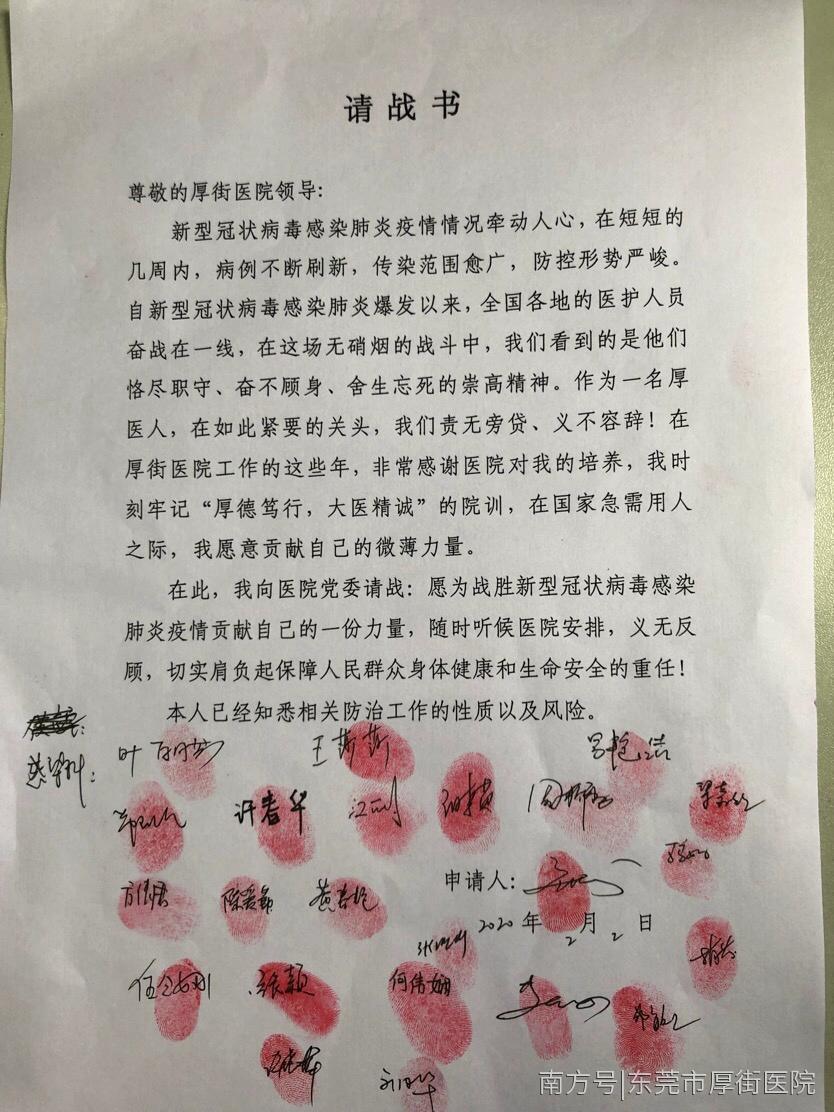 请战书
尊敬的厚街医院领导：
新型冠状病毒感染肺炎疫情情况牵动人心，在短短的
几周内，病例不断刷新，传染范围愈广，防控形势严峻。
自新型冠状病毒感染肺炎爆发以来，全国各地的医护人员
奋战在一线，在这场无硝烟的战斗中，我们看到的是他们
恪尽职守、奋不顾身、舍生忘死的崇高精神。作为一名厚
医人，在如此紧要的关头，我们责无旁贷、义不容辞！在
厚街医院工作的这些年，非常感谢医院对我的培养，我时
刻牢记“厚德笃行，大医精诚”的院训，在国家急需用人
之际，我愿意贡献自己的微薄力量。
在此，我向医院党委请战：愿为战胜新型冠状病毒感染
肺炎疫情贡献自己的一份力量，随时听候医院安排，义无反
顾，切实肩负起保障人民群众身体健康和生命安全的重任！
本人已经知悉相关防治工作的性质以及风险。
感染科：
王莎莎
许春华
申请人：
2020年2月2日
张颖
何伟娴
南方号|东莞市厚街医院